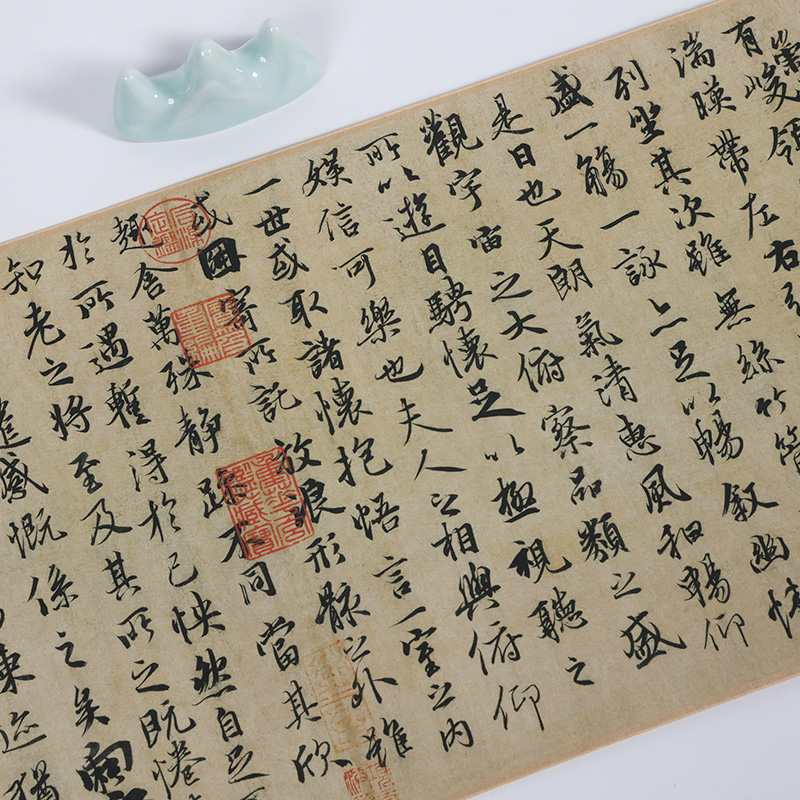 有峻領
湍暎帶左右引
列坐其次雖無絲竹管
盛一觴一詠亦足以暢叙幽情
是日也天朗氣清惠風和暢仰
觀宇宙之大俯察品類之盛
所以遊目騁懷足以極視聽之
娛信可樂也夫人之相與俯仰
一世或取諸懷抱悟言一室之內
或因寄所託放浪形骸之外雖
趣舍萬殊静躁不同當其欣
於所遇蹔得於己怏然自足
知老之將至及其所之既惓
遷感慨係之矣向
陳迹猶